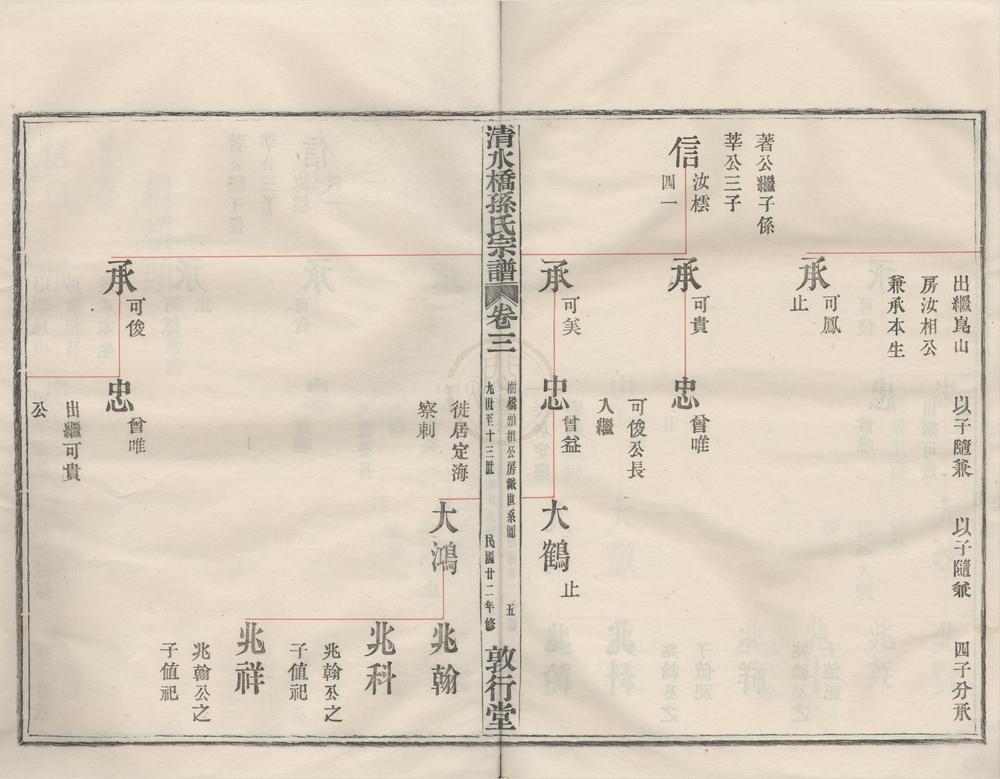 出繼嵬山
房汝相公
兼承本生
以子隨兼
以子隨兼
四子分承
承
可鳳
止
著公繼子係
莘公三子
信
汝橒
四一
承
可貴
忠
曾唯
可俊公長
入繼
承
可美
忠
曾益
大鶴
止
清水橋孫氏宗譜
卷三
樹橋頭相公房派世系圖
五
九世至十三世
民國廿二年修
敦行堂
徙居定海
察剌
大鴻
兆翰
兆科
兆翰公之
子值祀
兆祥
兆翰公之
子值祀
承
可俊
忠
曾唯
出繼可貴
公